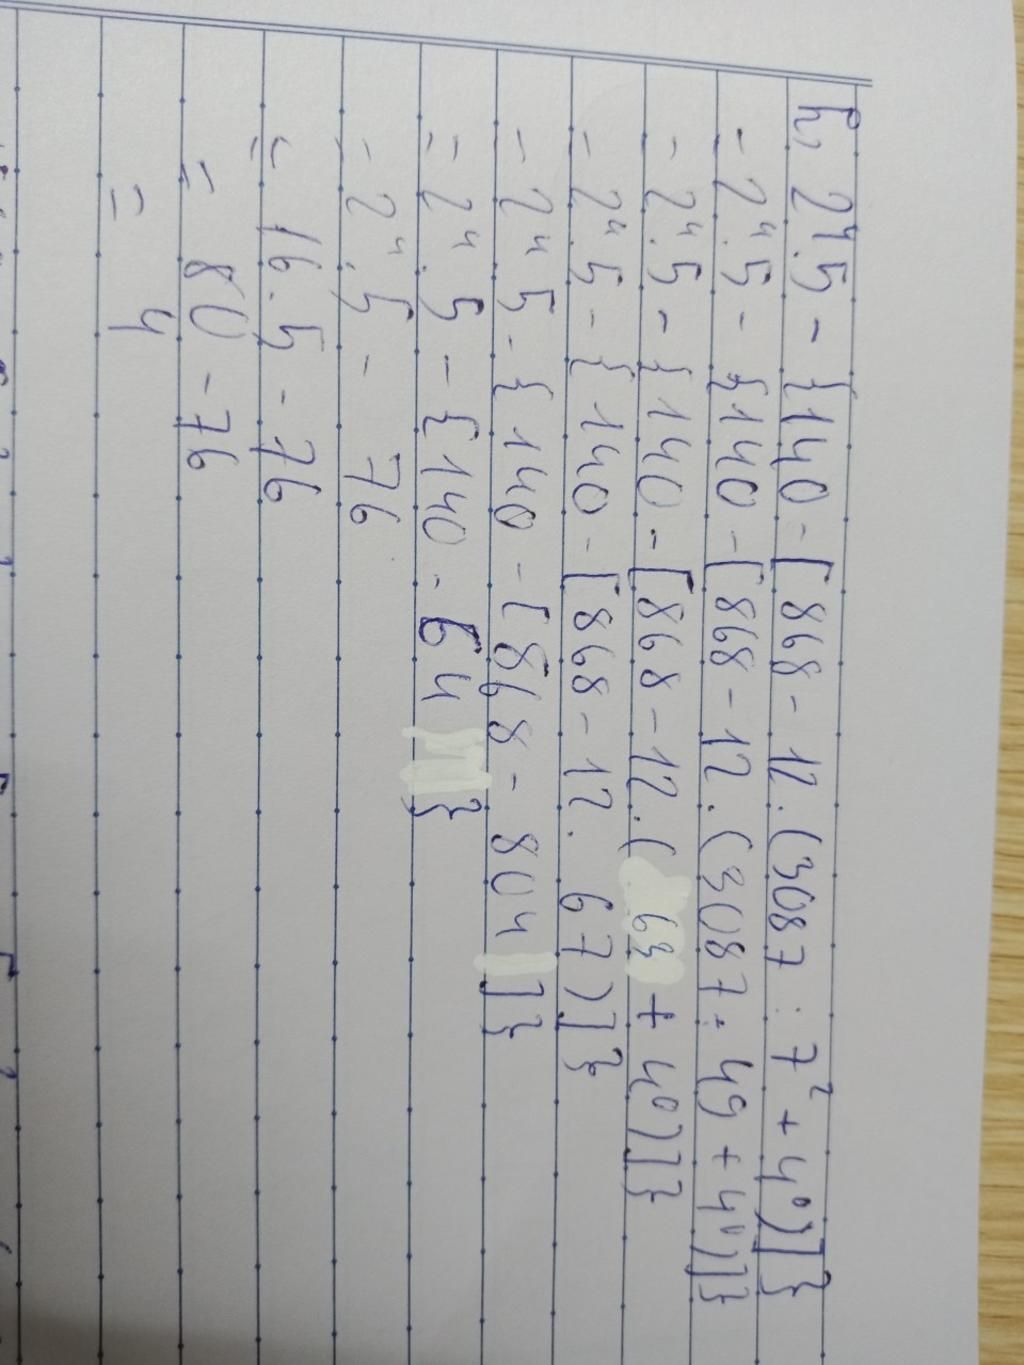 h, 2⁴.5 - {140 - [868 - 12.(3087 : 7² + 4⁰)]}
= 2⁴.5 - {140 - [868 - 12.(3087 : 49 + 4⁰)]}
= 2⁴.5 - {140 - [868 - 12.( 63 + 4⁰)]}
= 2⁴.5 - {140 - [868 - 12. 67)]}
= 2⁴.5 - {140 - [868 - 804]}
= 2⁴.5 - {140 - 64}
= 2⁴.5 - 76
= 16.5 - 76
= 80 - 76
= 4